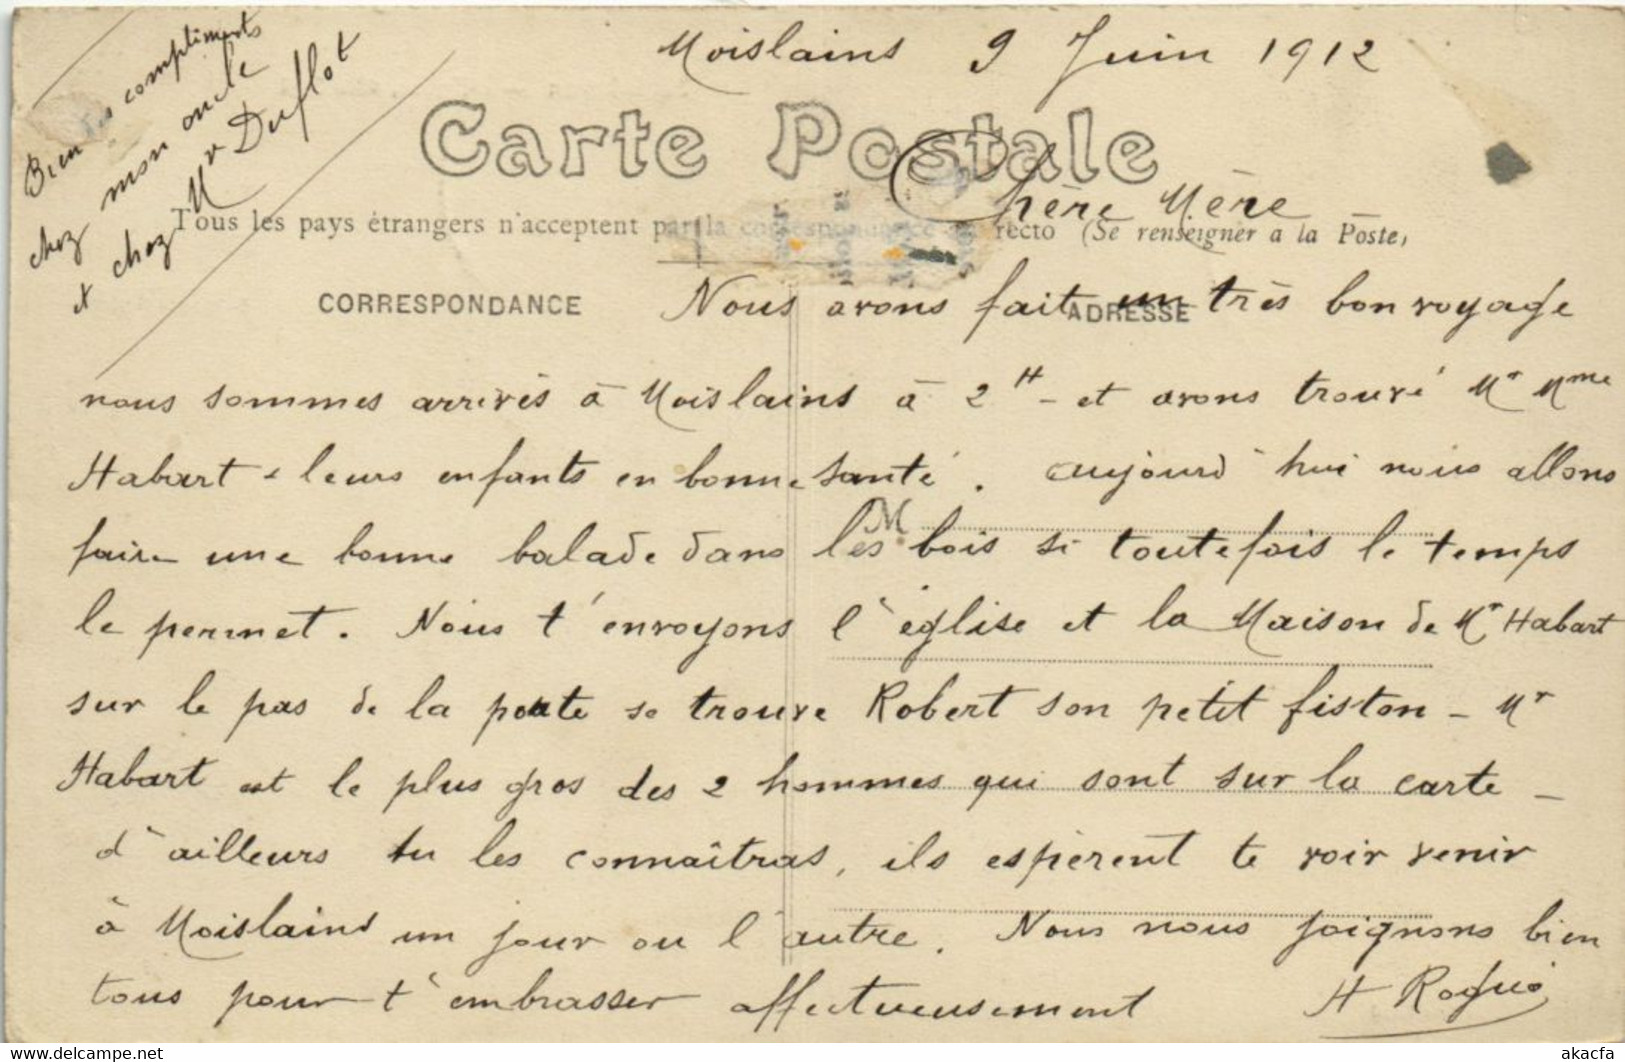 Moislains 9 Juin 1912
Bien des compliments
chez mon oncle
et chez Mr Duflot
Carte Postale
Chère Mère
Tous les pays étrangers n'acceptent par la correspondance recto (Se renseigner à la Poste)
CORRESPONDANCE
ADRESSE
Nous avons fait un très bon voyage
nous sommes arrivés à Moislains à 2 H - et avons trouvé Mr Mme
Habart & leurs enfants en bonne santé. aujourd'hui nous allons
M
faire une bonne balade dans les bois si toutefois le temps
le permet. Nous t'envoyons l'église et la Maison de Mr Habart
sur le pas de la porte se trouve Robert son petit fiston - Mr
Habart est le plus gros des 2 hommes qui sont sur la carte -
d'ailleurs tu les connaîtras, ils espèrent te voir venir
à Moislains un jour ou l'autre. Nous nous joignons bien
tous pour t'embrasser affectueusement
H
akacfa
www.delcampe.net